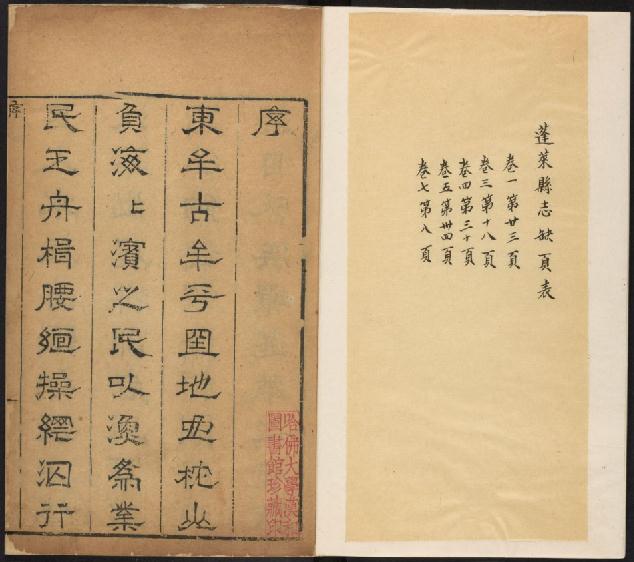 蓬萊縣志缺頁表
卷一第廿三頁
卷三第十八頁
卷四第三十頁
卷五第卌四頁
卷七第八頁
序
東牟古牟子國地也枕山
負海上濱之民以漁為業
民
舟楫腰絙操網泅行
序
哈佛大學漢和圖書館珍藏印